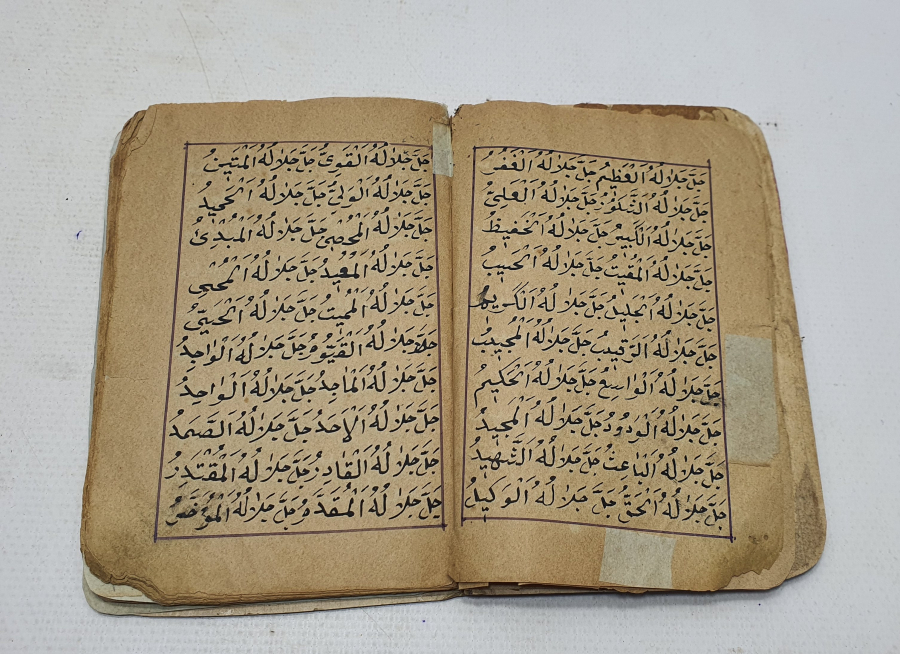 جَلَّ جَلَالُهُ الْعَظِيمُ جَلَّ جَلَالُهُ الْغَفُرُ
جَلَّ جَلَالُهُ الشَّكُورُ جَلَّ جَلَالُهُ الْعَلِيُّ
جَلَّ جَلَالُهُ الْكَبِيرُ جَلَّ جَلَالُهُ الْحَفِيظُ
جَلَّ جَلَالُهُ الْمُقِيتُ جَلَّ جَلَالُهُ الْحَسِيبُ
جَلَّ جَلَالُهُ الْجَلِيلُ جَلَّ جَلَالُهُ الْكَرِيمُ
جَلَّ جَلَالُهُ الرَّقِيبُ جَلَّ جَلَالُهُ الْمُجِيبُ
جَلَّ جَلَالُهُ الْوَاسِعُ جَلَّ جَلَالُهُ الْحَكِيمُ
جَلَّ جَلَالُهُ الْوَدُودُ جَلَّ جَلَالُهُ الْمَجِيدُ
جَلَّ جَلَالُهُ الْبَاعِثُ جَلَّ جَلَالُهُ الشَّهِيدُ
جَلَّ جَلَالُهُ الْحَقُّ جَلَّ جَلَالُهُ الْوَكِيلُ
جَلَّ جَلَالُهُ الْقَوِيُّ جَلَّ جَلَالُهُ الْمَتِينُ
جَلَّ جَلَالُهُ الْوَلِيُّ جَلَّ جَلَالُهُ الْحَمِيدُ
جَلَّ جَلَالُهُ الْمُحْصِي جَلَّ جَلَالُهُ الْمُبْدِئُ
جَلَّ جَلَالُهُ الْمُعِيدُ جَلَّ جَلَالُهُ الْمُحْيِي
جَلَّ جَلَالُهُ الْمُمِيتُ جَلَّ جَلَالُهُ الْحَيُّ
جَلَّ جَلَالُهُ الْقَيُّومُ جَلَّ جَلَالُهُ الْوَاجِدُ
جَلَّ جَلَالُهُ الْمَاجِدُ جَلَّ جَلَالُهُ الْوَاحِدُ
جَلَّ جَلَالُهُ الْأَحَدُ جَلَّ جَلَالُهُ الصَّمَدُ
جَلَّ جَلَالُهُ الْقَادِرُ جَلَّ جَلَالُهُ الْمُقْتَدِرُ
جَلَّ جَلَالُهُ الْمُقَدِّمُ جَلَّ جَلَالُهُ الْمُؤَخِّرُ